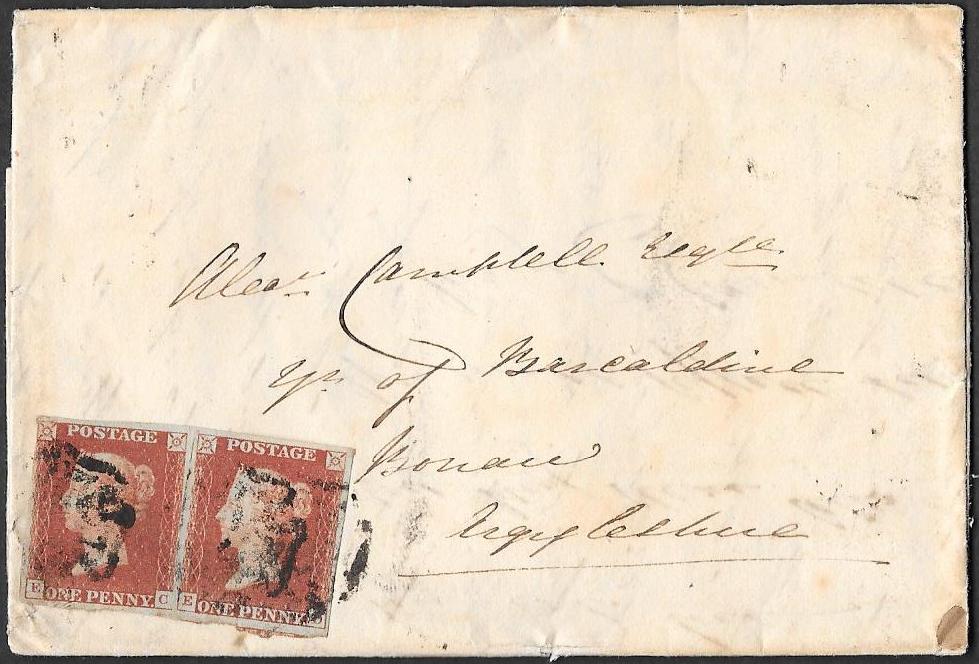 Alexr. Campbell Esqre
Yr. of Barcaldine
Bonaw
Argyleshire
POSTAGE POSTAGE
E ONE PENNY. C E ONE PENNY.